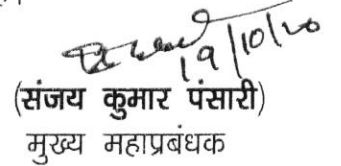 19/10/20
(संजय कुमार पंसारी)
मुख्य महाप्रबंधक